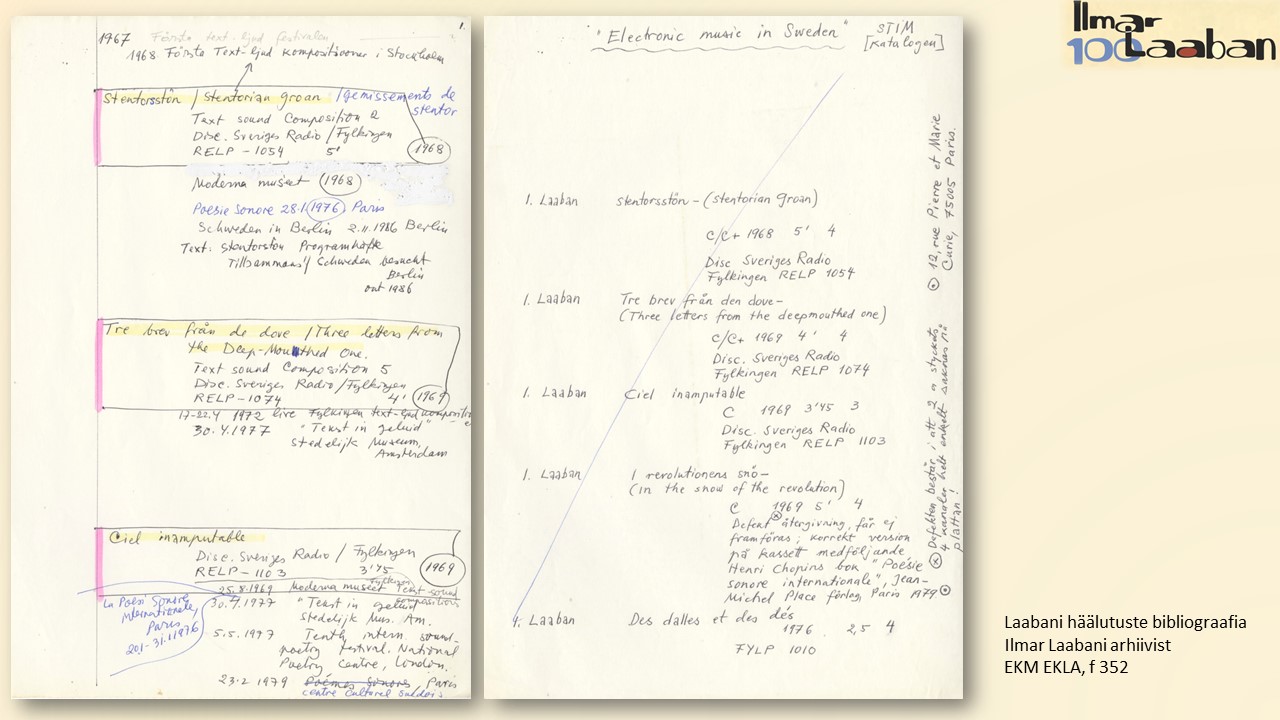 1.
1967 Första text-ljud festivalen
1968 Första Text-ljud kompositioner i Stockholm
Stentorsstön / Stentorian groan / gemissements de
stentor
Text sound Composition 2
Disc. Sveriges Radio / Fylkingen
RELP - 1054 5'
1968
Moderna museet 1968
Poésie Sonore 28.1 1976 Paris
Schweden in Berlin 2.11.1986 Berlin
Text: stentorstön Programhäfte
Tillsammans / Schweden besucht
Berlin
okt 1986
Tre brev från de dove / Three letters from
the Deep-Mouthed One.
Text sound Composition 5
Disc. Sveriges Radio / Fylkingen
RELP - 1074 4'
1969
17-22.4 1972 live Fylkingen text-ljudkompositio
30.4.1977 "Tekst in geluid"
Stedelijk Museum,
Amsterdam
Ciel inamputable
Disc. Sveriges Radio / Fylkingen
RELP - 1103 3'45
1969
25.8.1969 Moderna museet Fylkingen Text-sound
compositions
30.4.1977 "Tekst in geluid"
Stedelijk Mus. Am.
5.5.1977 Tenth intern. sound-
poetry festival. National
Poetry Centre, London.
23.2 1979 Poèmes Sonores, Paris
centre culturel suédois
La Poési Sonore
Internationale,
Paris
20.1-31.1 1976
"Electronic music in Sweden" STIM
[katalogen]
I. Laaban stentorsstön - (stentorian groan)
C/C+ 1968 5' 4
Disc Sveriges Radio
Fylkingen RELP 1054
I. Laaban Tre brev från den dove -
(Three letters from the deepmouthed one)
C/C+ 1969 4' 4
Disc. Sveriges Radio
Fylkingen RELP 1074
I. Laaban Ciel inamputable
C 1969 3'45 3
Disc. Sveriges Radio
Fylkingen RELP 1103
I. Laaban I revolutionens snö -
(in the snow of the revolution)
C 1969 5' 4
Defekt återgivning, får ej
framföras; korrekt version
på kassett medföljande
Henri Chopins bok "Poésie
sonore internationale", Jean-
Michel Place förlag, Paris 1979
I. Laaban Des dalles et des dés
1976 2,5 4
FYLP 1010
12, rue Pierre et Marie
Curie, 75005 Paris.
Defekten består i att 2 a styckets
4 kanaler helt enkelt saknas på
plattan!
Ilmar
100 Laaban
Laabani häälutuste bibliograafia
Ilmar Laabani arhiivist
EKM EKLA, f 352